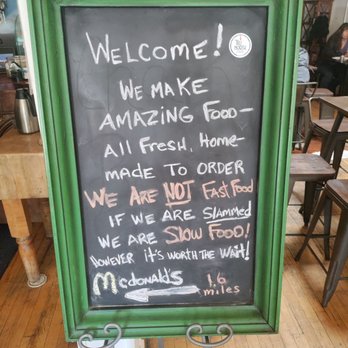 WELCOME!
WE MAKE
AMAZING FOOD-
ALL FRESH, HOME-
MADE TO ORDER
WE ARE NOT FAST FOOD
IF WE ARE SLAMMED
WE ARE SLOW FOOD!
HOWEVER IT'S WORTH THE WAIT!
McDONALD'S 1.6
MILES